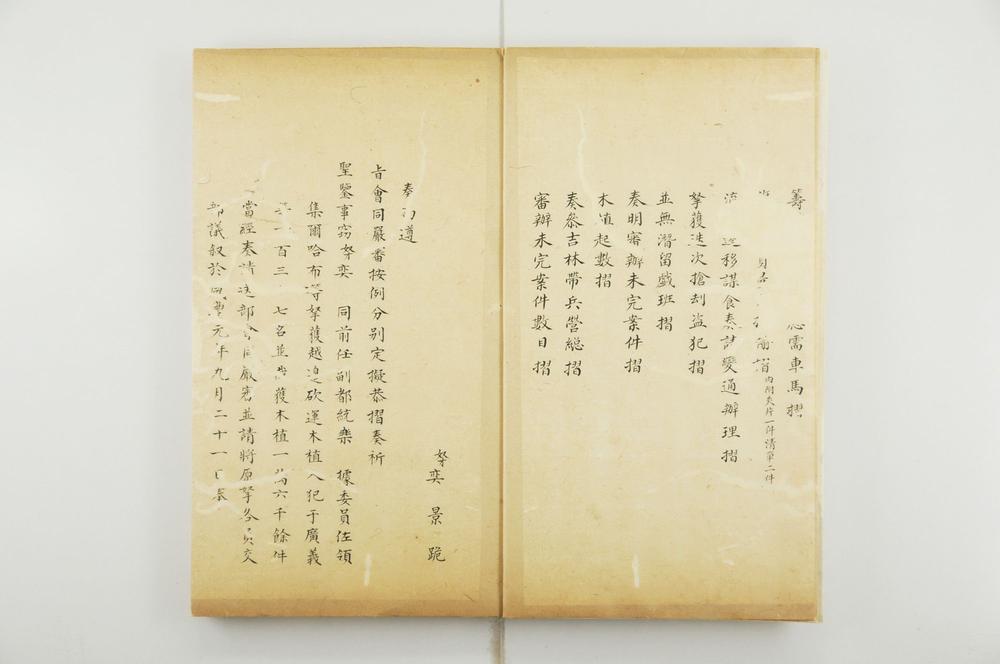 籌 應需車馬摺
內附夾片一件清單二件
流 移謀食奏請變通辦理摺
拏獲迭次搶刦盜犯摺
並無潛留戲班摺
奏明審辦未完案件摺
木植起數摺
奏叅吉林帶兵營總摺
審辦未完案件數目摺
奕 景 跪
奏 遵
旨會同嚴審按例分別定擬恭摺奏祈
聖鑒事竊奴奕 同前任副都統樂 據委員佐領
集爾哈布等拏獲越邊砍運木植人犯于廣義
一百三 七名並 獲木植一萬六千餘件
當經奏請送部會同嚴審並請將原拏各員交
部議敘於咸豐元年九月二十一日奉